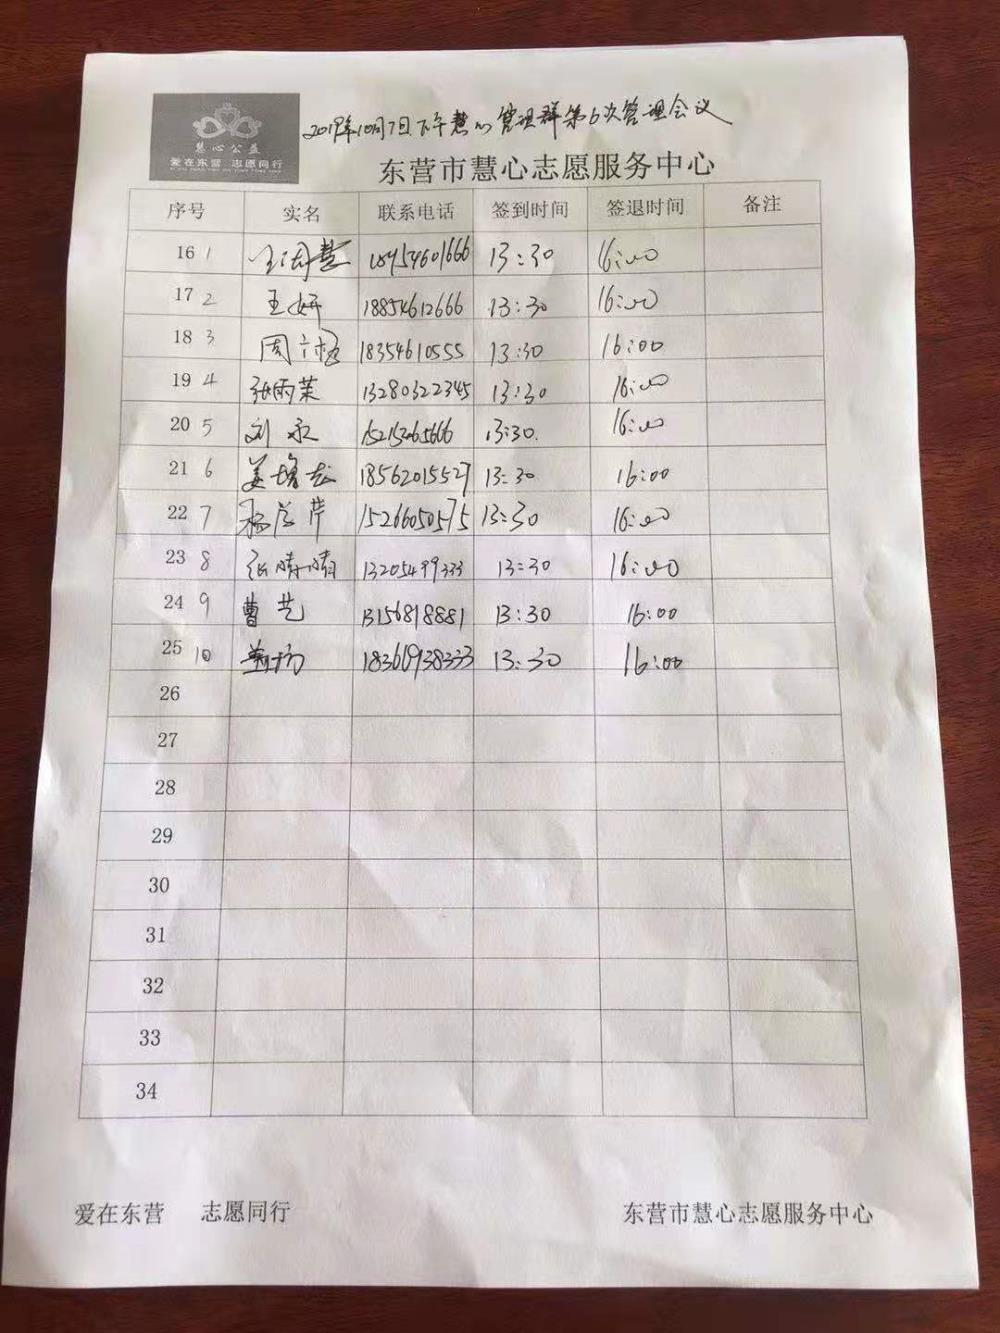 2019年10月7日下午慧心管理群第6次管理会议
慧心公益
爱在东营 志愿同行
东营市慧心志愿服务中心
序号 实名 联系电话 签到时间 签退时间 备注
16 1 18454601666 13:30 16:00
17 2 王妍 18854612666 13:30 16:00
18 3 周 18354610555 13:30 16:00
19 4 张雨茉 13280322345 13:30 16:00
20 5 刘永 15215465666 13:30. 16:00
21 6 姜增志 18562015527 13:30 16:00
22 7 杨芹 15266050575 13:30 16:00
23 8 张晴晴 13205499333 13:30 16:00
24 9 曹艺 13156818881 13:30 16:00
25 10 18366938333 13:30 16:00
26
27
28
29
30
31
32
33
34
爱在东营 志愿同行 东营市慧心志愿服务中心